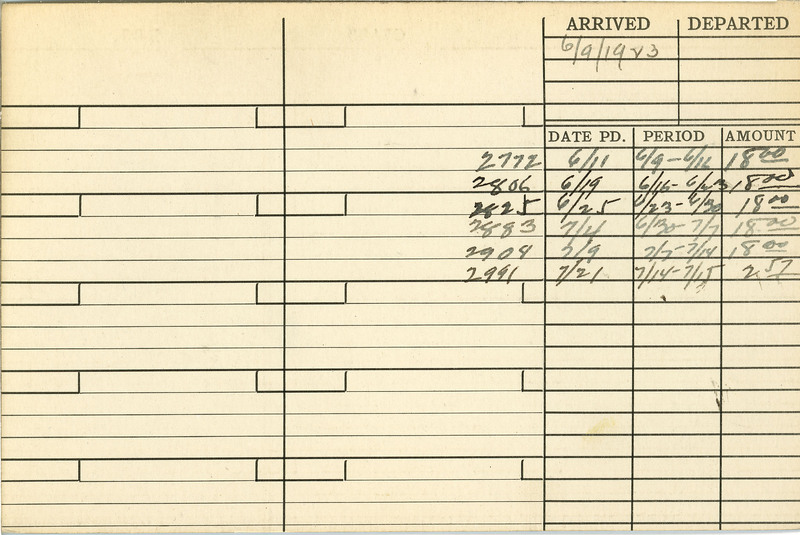 ARRIVED DEPARTED
6/9/1923
DATE PD. PERIOD AMOUNT
2772 6/11 6/9-6/16 18.00
2806 6/19 6/16-6/23 18.00
2825 6/25 6/23-6/30 18.00
2883 7/4 6/30-7/7 18.00
2904 7/9 7/7-7/14 18.00
2991 7/21 7/14-7/15 2.57